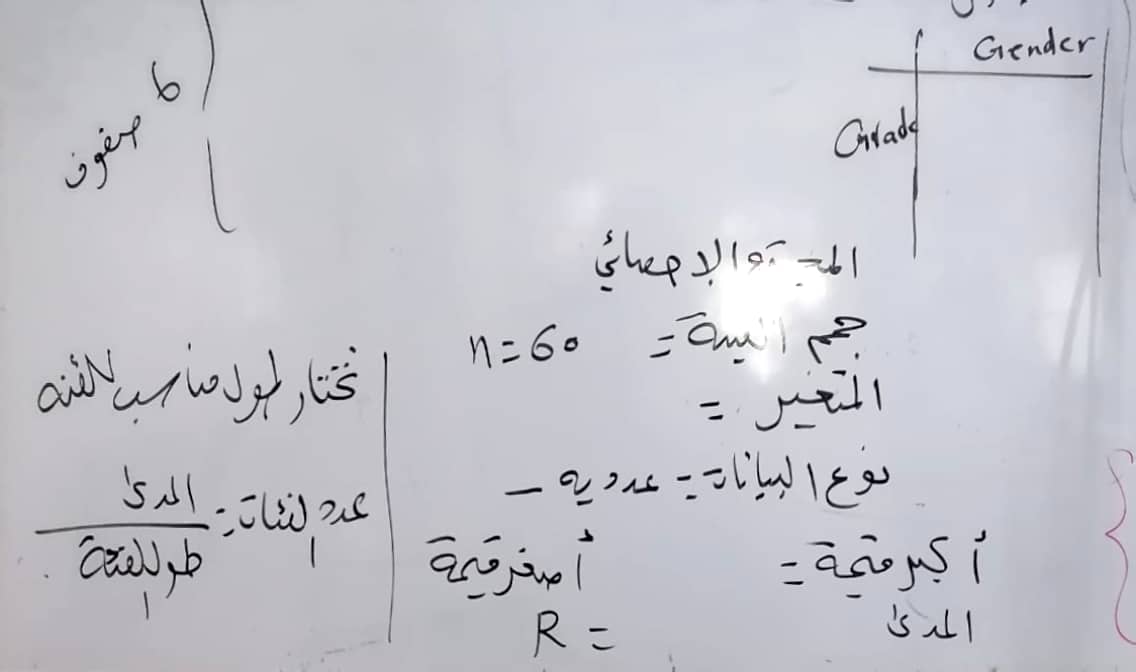 Gender
Grade
6 صفوف
المجتمع الإحصائي
حجم العينة = n=60
المتغير =
نوع البيانات = عددية -
أكبر قيمة = أصغر قيمة
المدى R =
نختار طول مناسب للفئة
عدد الفئات = المدى
طول الفئة